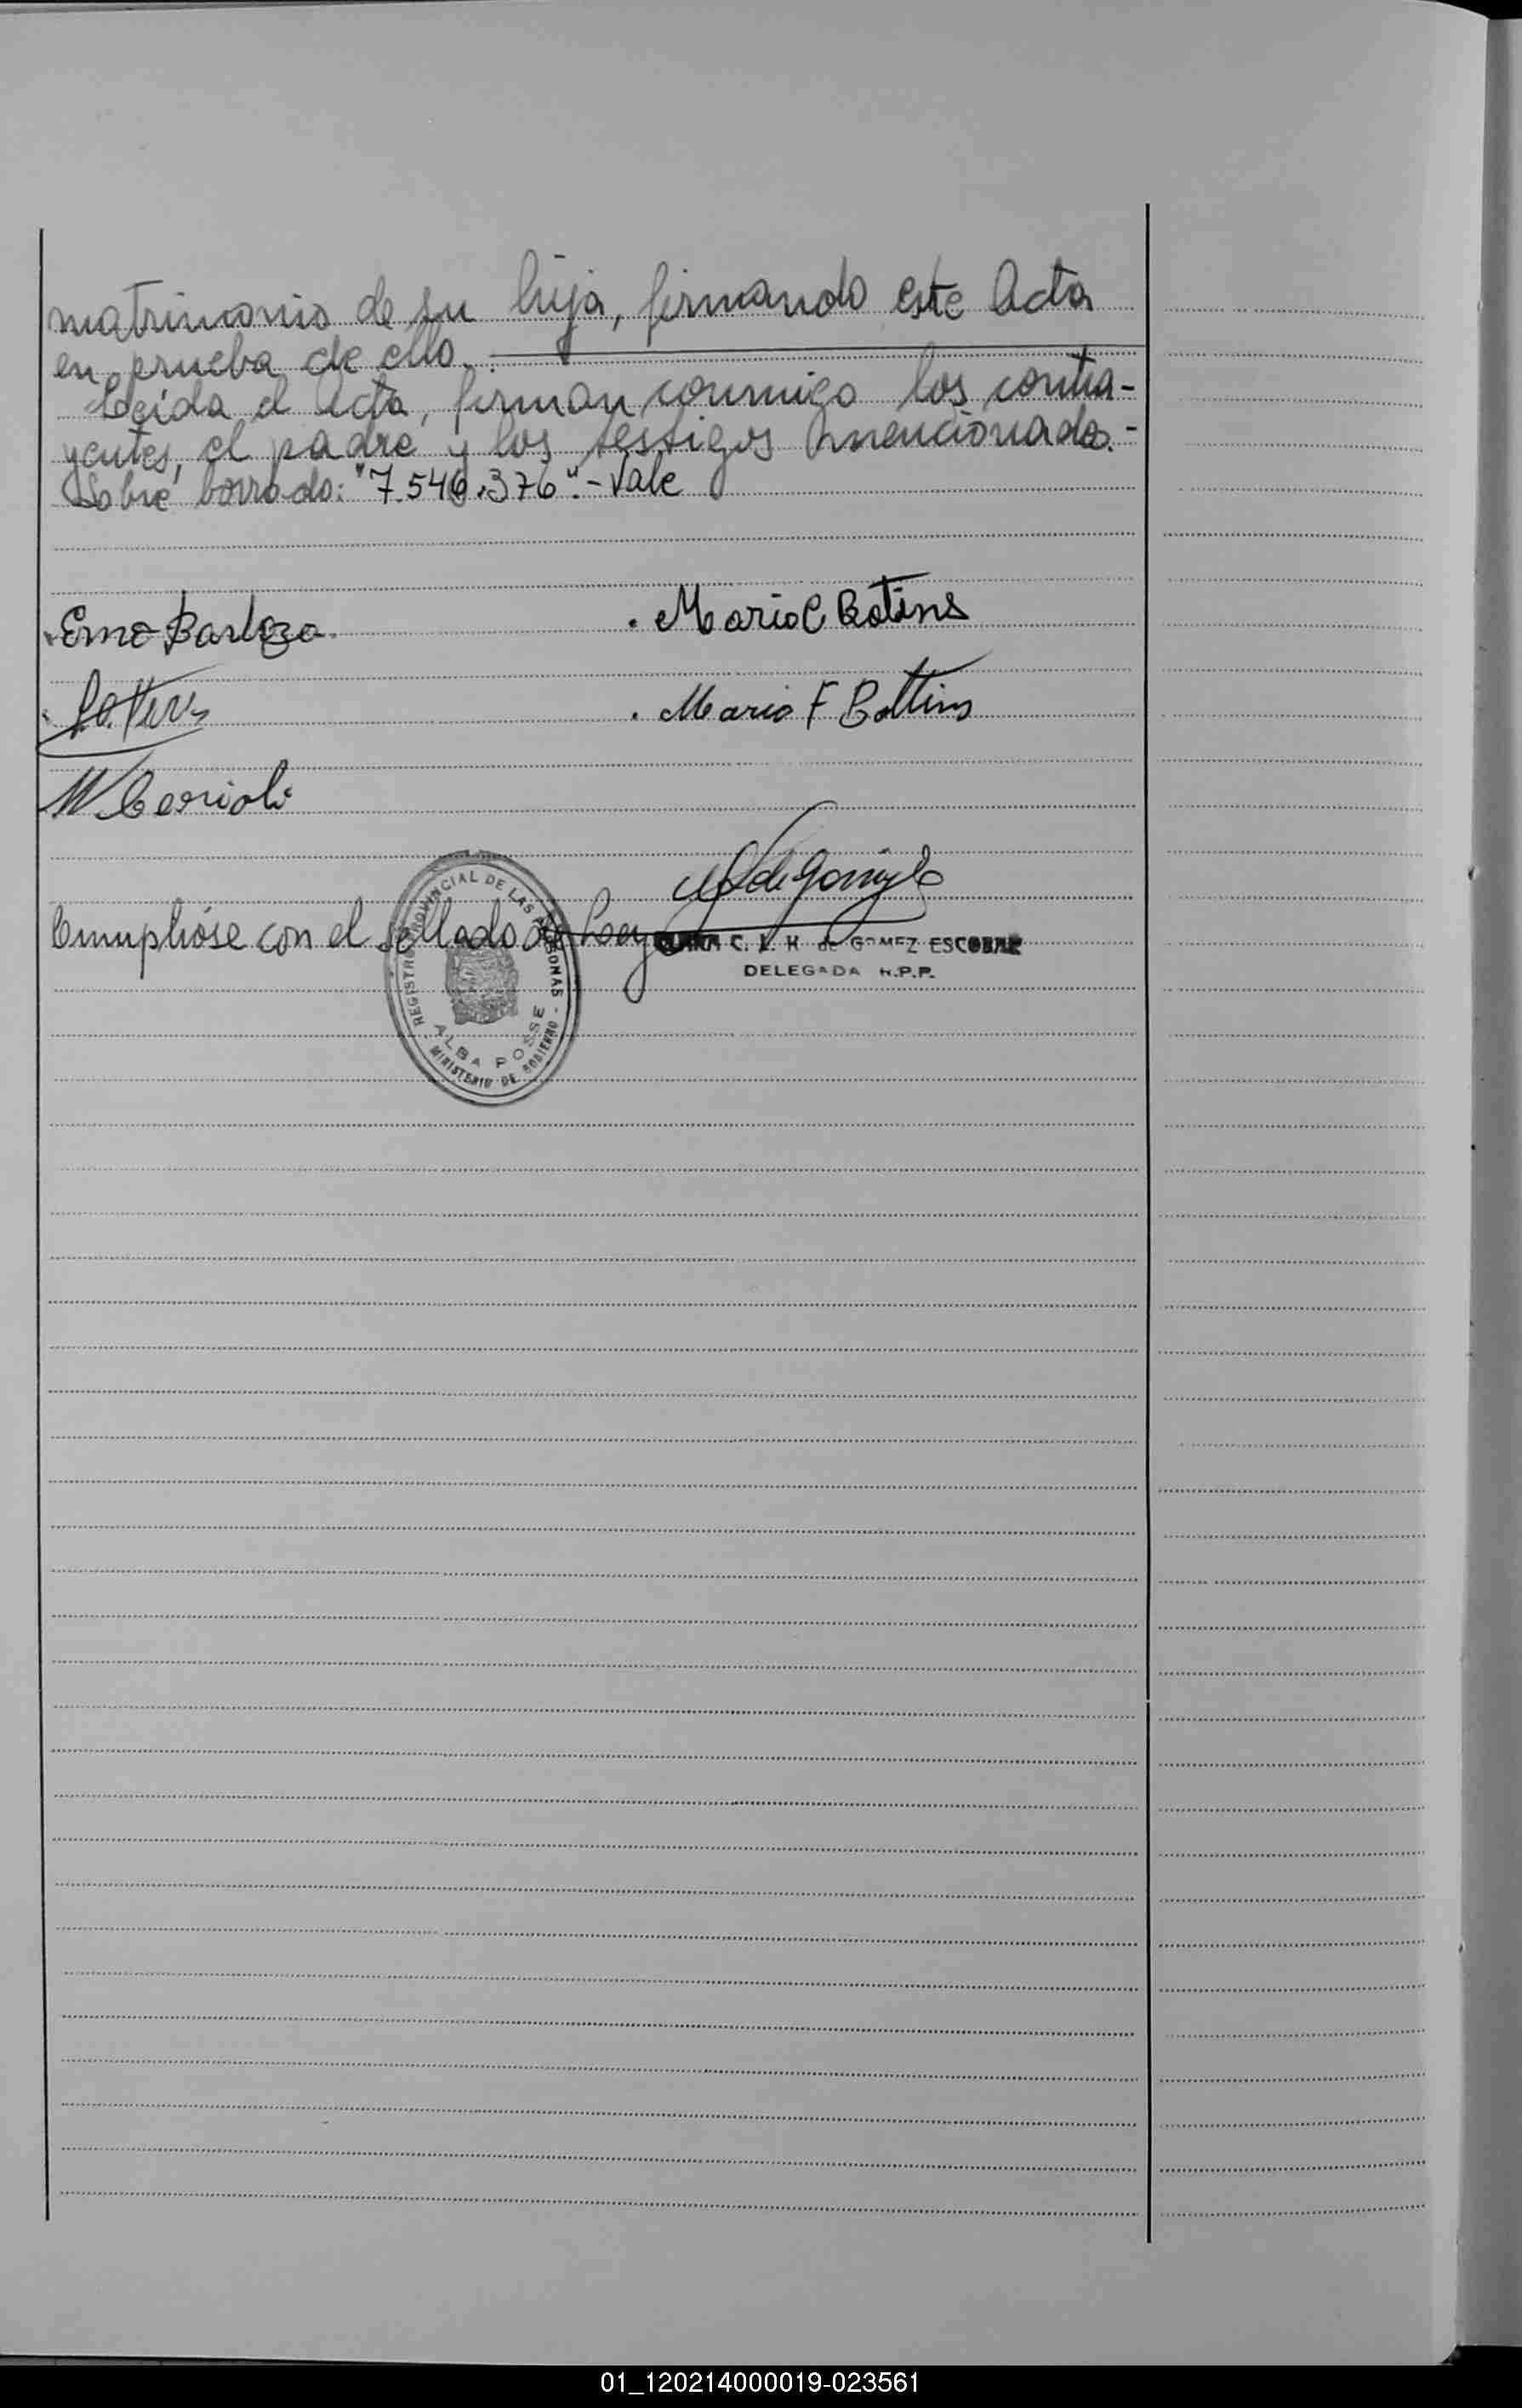 matrimonio de su hija, firmando este Acta
en prueba de ello.
Leída el Acta, firman conmigo los contra-
yentes, el padre y los testigos mencionados.-
Sobre borrado: "7.546.376".- Vale
Erno Barboza
Mario C Botins
Mario F Bottins
W
Cumplióse con el sellado de Ley
C. L. H. de GOMEZ ESCOBAR
DELEGADA R.P.P.
REGISTRO PROVINCIAL DE LAS PERSONAS
ALBA POSSE
MINISTERIO DE GOBIERNO
01_120214000019-023561